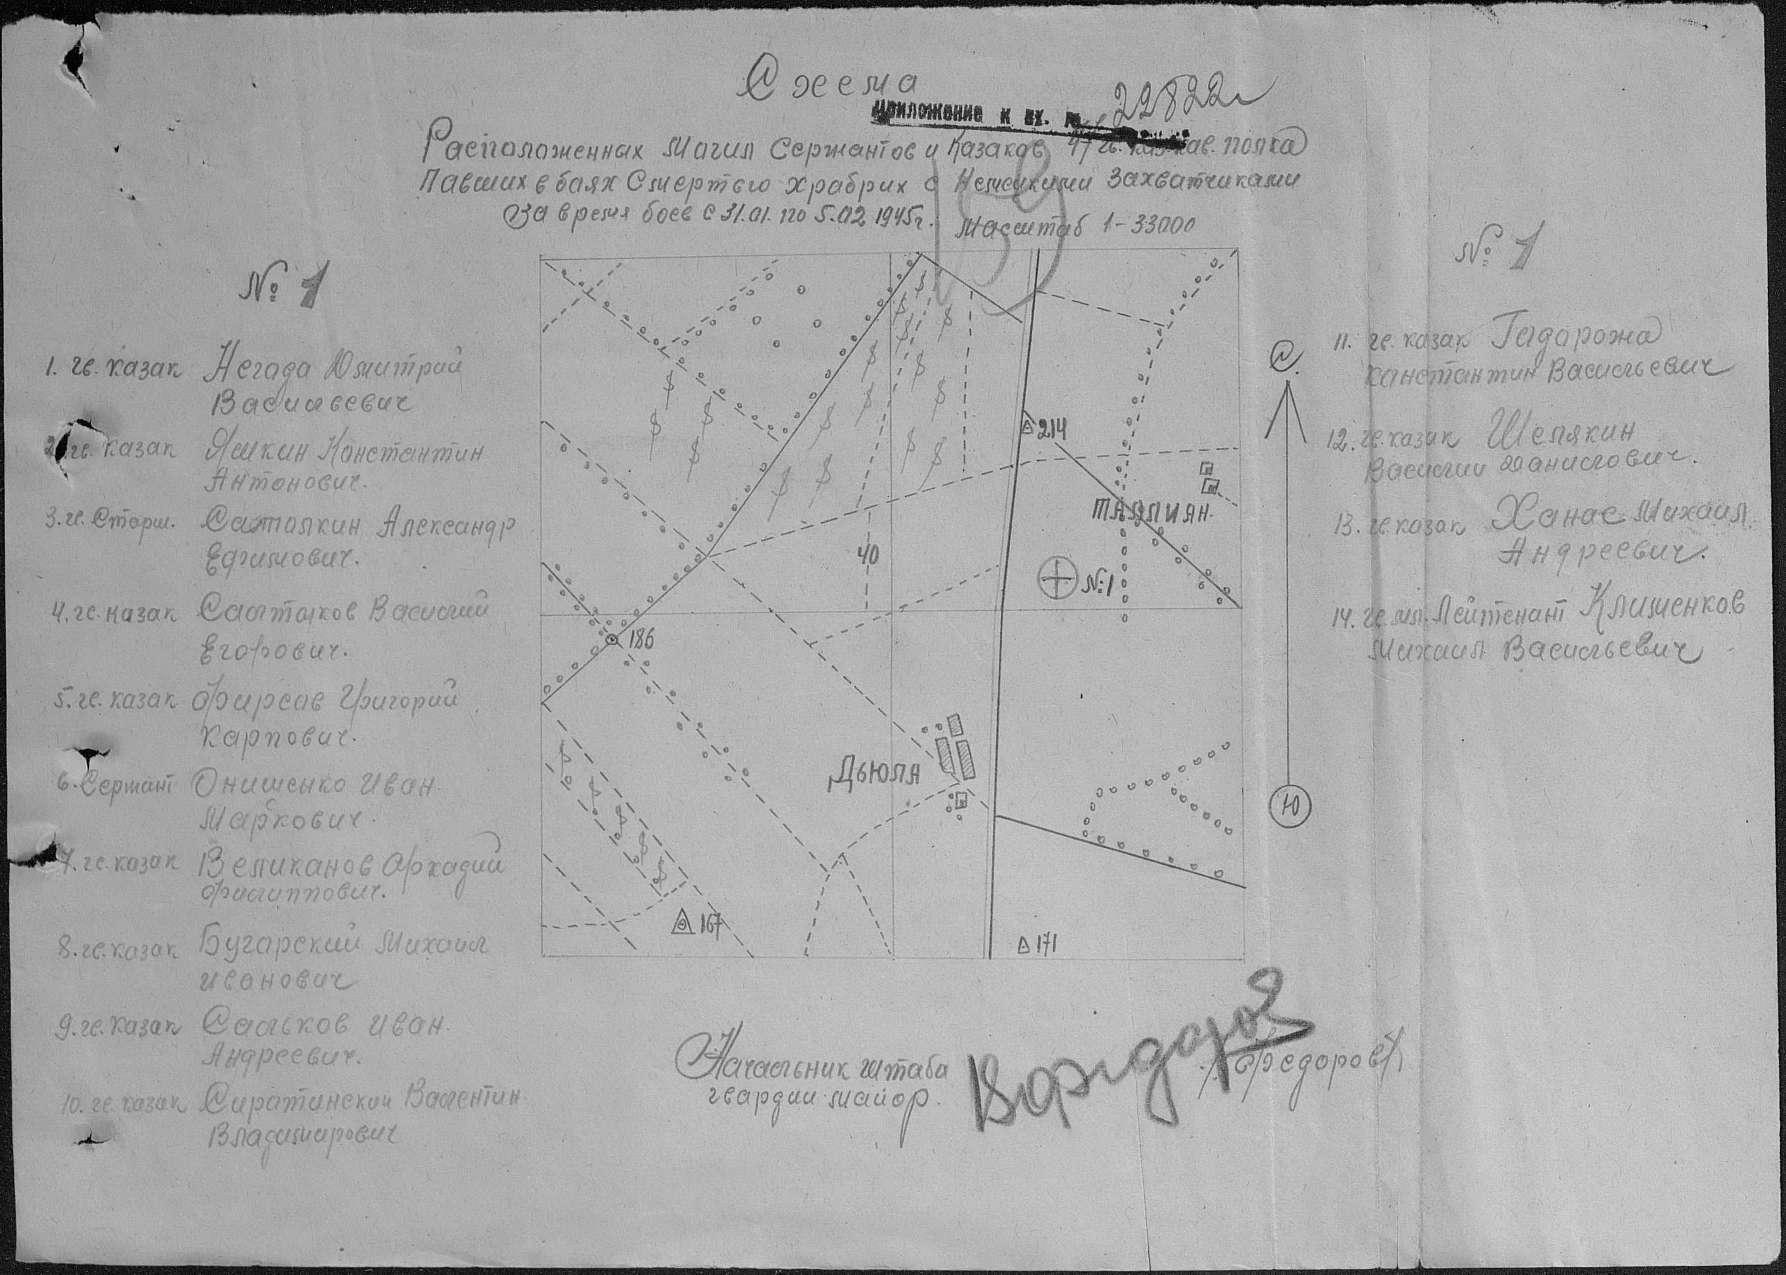 Схема
Приложение к вх. № 22822с
Расположенных Могил Сержантов и Казаков 47 гв. каз. кав. полка
Павших в боях Смертью храбрих с Немецкими Захватчиками
За время боев с 31.01. по 5.02 1945г. Масштаб 1-33000
№ 1
1. гв. казак Негода Дмитрий
Васильевич
2. гв. казак Яшкин Константин
Антонович.
3. гв. Старш. Саталкин Александр
Ефимович.
4. гв. казак Салтыков Василий
Егорович.
5. гв. казак Фирсов Григорий
Карпович.
6. Сержант Онищенко Иван
Маркович.
7. гв. казак Великанов Аркадий
Филиппович.
8. гв. казак Бугарский Михаил
Иванович
9. гв. казак Сальков Иван
Андреевич.
10. гв. казак Сиратинский Валентин
Владимирович
214
ТАЛЛИЯН
40
№1
186
ДЬЮЛА
167
171
С
Ю
№ 1
11. гв. казак Гадорожа
Константин Васильевич
12. гв. казак Шелякин
Василий Данилович.
13. гв. казак Ханас Михаил
Андреевич.
14. гв. мл. Лейтенант Клименков
Михаил Васильевич
Начальник штаба
гвардии майор.
/Федоров/